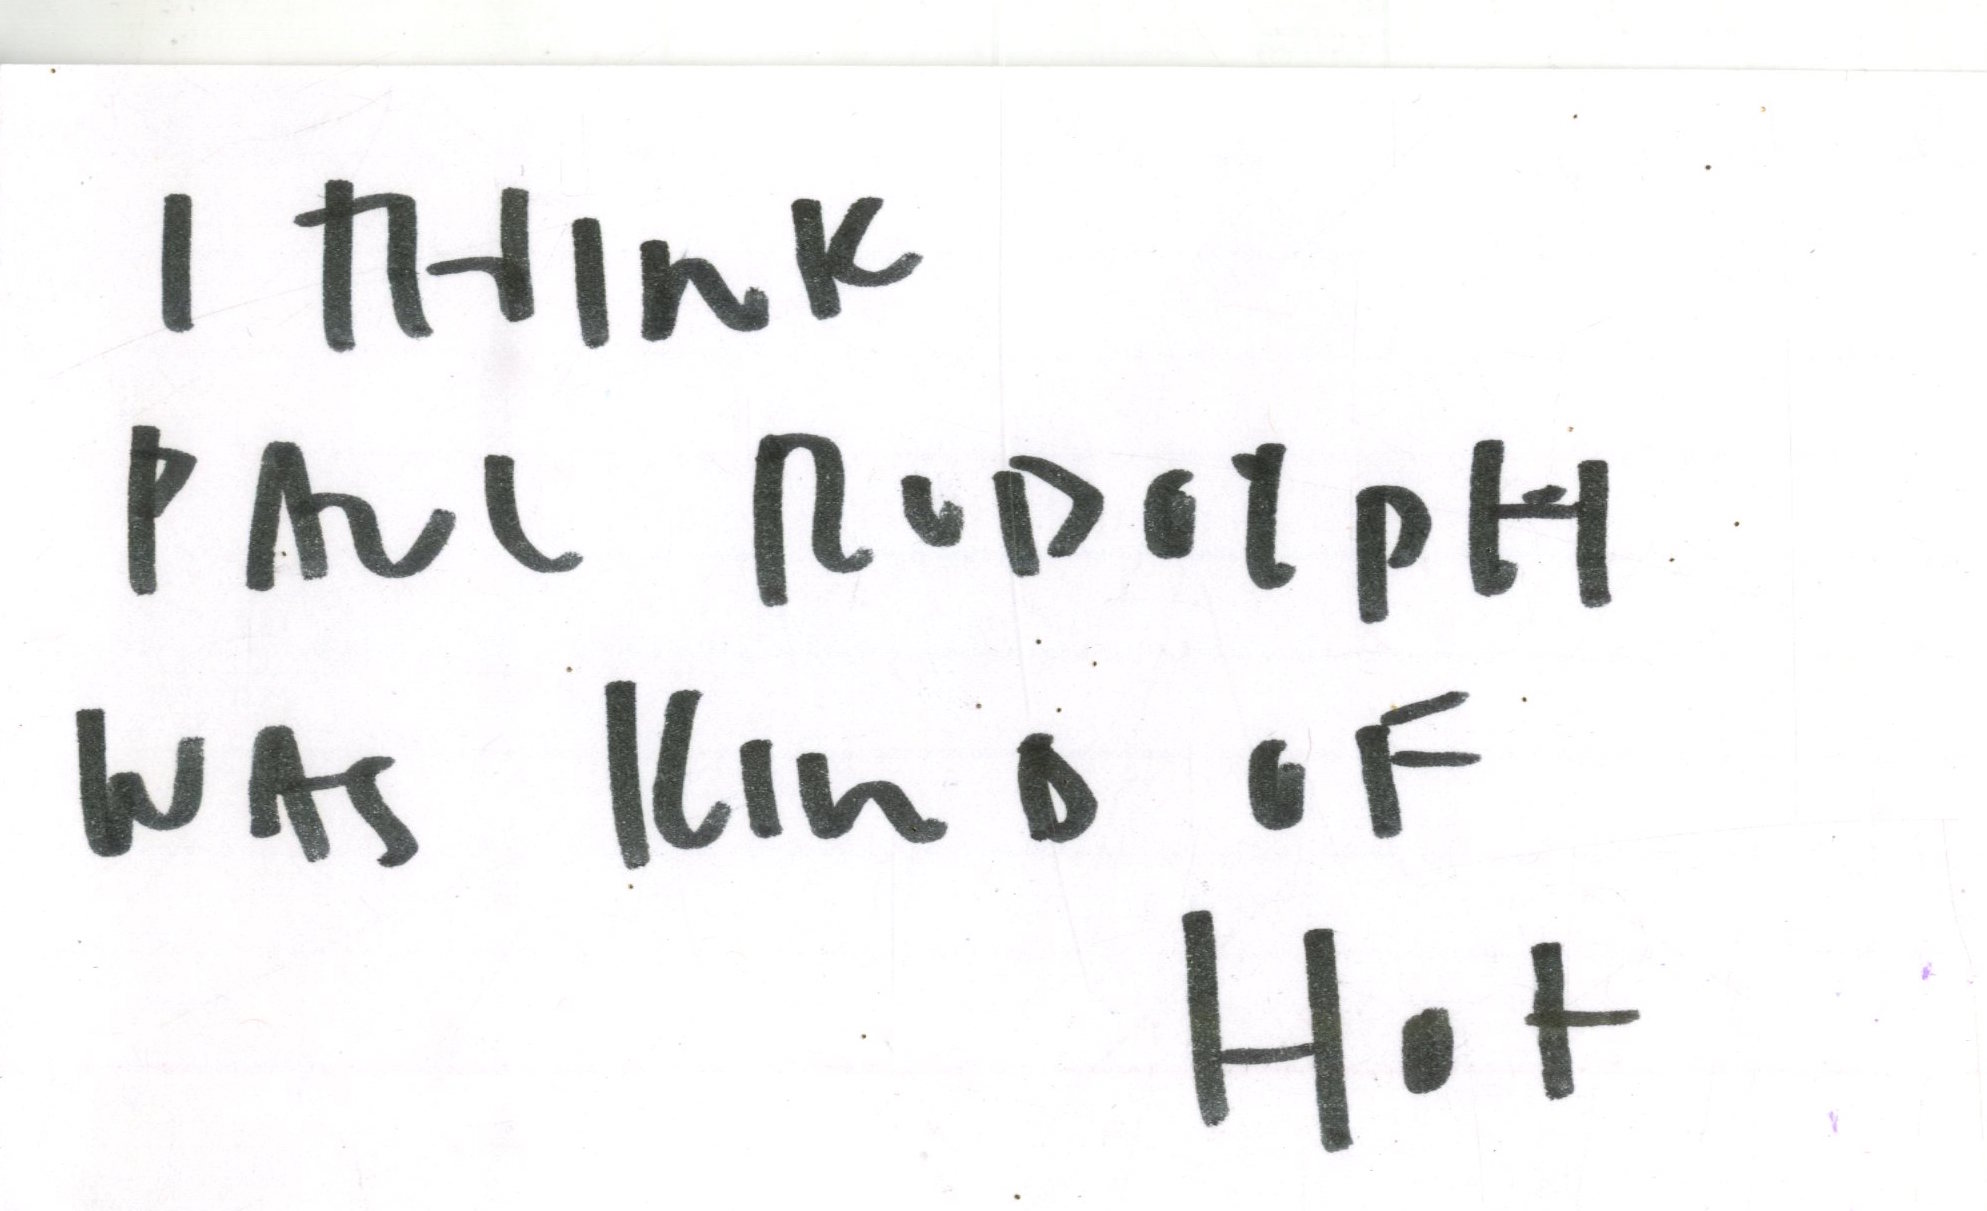 I THINK
PAUL RUDOLPH
WAS KIND OF
HOT